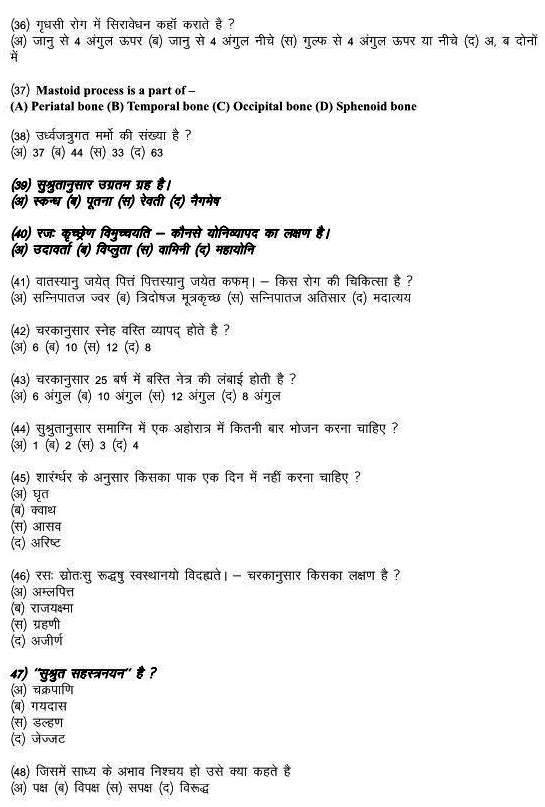 (36) गृधसी रोग में सिरावेधन कहाँ कराते है ?
(अ) जानु से 4 अंगुल ऊपर (ब) जानु से 4 अंगुल नीचे (स) गुल्फ से 4 अंगुल ऊपर या नीचे (द) अ, ब दोनों
में
(37) Mastoid process is a part of –
(A) Periatal bone (B) Temporal bone (C) Occipital bone (D) Sphenoid bone
(38) उर्ध्वजत्रुगत मर्मो की संख्या है ?
(अ) 37 (ब) 44 (स) 33 (द) 63
(39) सुश्रुतानुसार उग्रतम ग्रह है।
(अ) स्कन्ध (ब) पूतना (स) रेवती (द) नैगमेष
(40) रजः कृच्छ्रेण विमुच्चयति – कौनसे योनिव्यापद का लक्षण है।
(अ) उदावर्ता (ब) विप्लुता (स) वामिनी (द) महायोनि
(41) वातस्यानु जयेत् पित्तं पित्तस्यानु जयेत कफम्। – किस रोग की चिकित्सा है ?
(अ) सन्निपातज ज्वर (ब) त्रिदोषज मूत्रकृच्छ (स) सन्निपातज अतिसार (द) मदात्यय
(42) चरकानुसार स्नेह वस्ति व्यापद् होते है ?
(अ) 6 (ब) 10 (स) 12 (द) 8
(43) चरकानुसार 25 बर्ष में बस्ति नेत्र की लंबाई होती है ?
(अ) 6 अंगुल (ब) 10 अंगुल (स) 12 अंगुल (द) 8 अंगुल
(44) सुश्रुतानुसार समाग्नि में एक अहोरात्र में कितनी बार भोजन करना चाहिए ?
(अ) 1 (ब) 2 (स) 3 (द) 4
(45) शारंर्ग्धर के अनुसार किसका पाक एक दिन में नहीं करना चाहिए ?
(अ) घृत
(ब) क्वाथ
(स) आसव
(द) अरिष्ट
(46) रसः स्रोतःसु रूद्धषु स्वस्थानयो विदह्यते। – चरकानुसार किसका लक्षण है ?
(अ) अम्लपित्त
(ब) राजयक्ष्मा
(स) ग्रहणी
(द) अजीर्ण
47) “सुश्रुत सहस्त्रनयन” है ?
(अ) चक्रपाणि
(ब) गयदास
(स) डल्हण
(द) जेज्जट
(48) जिसमें साध्य के अभाव निश्चय हो उसे क्या कहते है
(अ) पक्ष (ब) विपक्ष (स) सपक्ष (द) विरूद्ध